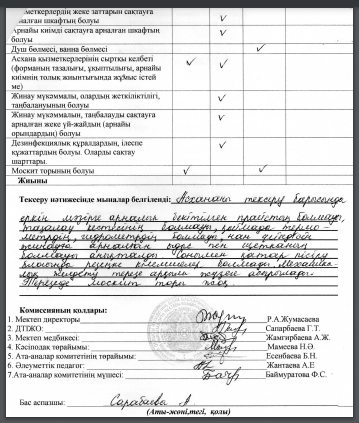 қызметкерлердің жеке заттарын сақтауға
арналған шкафтың болуы
Арнайы киімді сақтауға арналған шкафтың
болуы
Душ бөлмесі, ванна бөлмесі
Асхана қызметкерлерінің сыртқы келбеті
(форманың тазалығы, ұқыптылығы, арнайы
киімнің толық жиынтығында жұмыс істей
ме)
Жинау мүкәммалы, олардың жеткіліктілігі,
таңбалануының болуы
Жинау мүкәммалын, таңбалауды сақтауға
арналған жеке үй-жайдың (арнайы
орындардың) болуы
Дезинфекциялық құралдардың, ілеспе
құжаттардың болуы. Оларды сақтау
шарттары.
Москит торының болуы
Жиыны
Тексеру нәтижесінде мыналар белгіленді: Асхананы тексеру барысында
еркін мәзірге арналған бекітілген прайстың болмауы,
тазалау кестесінің болмауы, термо-
метрдің, гидрометрдің болмауы, нан үгіндісін
жинауға арналған ыдыс пен щетканың
болмауы анықталды. Сонымен қатар пісіру
болмады.
терезе арқылы жүзеге асырылады.
Терезеде москит торы жоқ.
Комиссияның қолдары:
1. Мектеп директоры Р.А.Жумасаева
2. ДТІЖО: Сапарбаева Г. Т.
3. Мектеп медбикесі: Жамгирбаева А.Ж.
4. Кәсіподақ төрайымы: Мамеева Н.Ә.
5. Ата-аналар комитетінің төрайымы: Есенбаева Б.Н.
6. Әлеуметтік педагог: Жантаева А.Е
7.Ата-аналар комитетінің мүшесі: Баймуратова Ф.С.
Бас аспазшы: Сарабаева А.
(Аты-жөні,тегі, қолы)